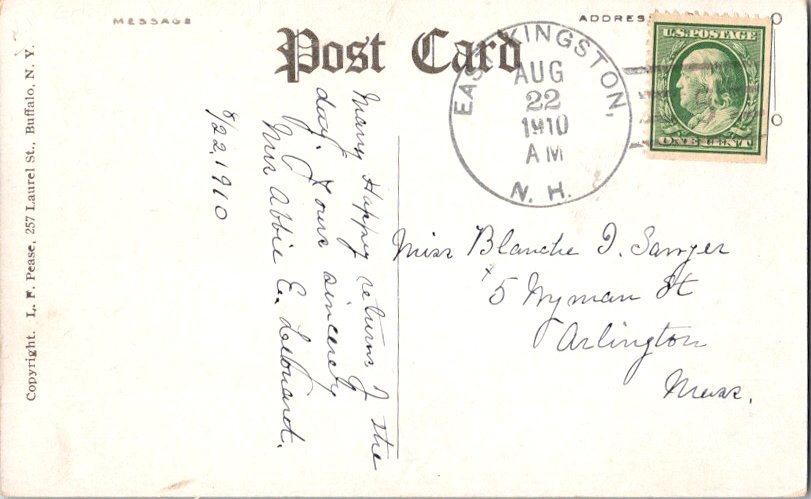 MESSAGE
Post Card
ADDRESS
EAST KINGSTON,
AUG
22
1910
AM
N. H.
U.S. POSTAGE
ONE CENT
Many Happy returns of the
day. Yours sincerely
Mrs Abbie E.
8/22, 1910
Miss Blanche I. Sawyer
5 Wyman St
Arlington
Mass.
Copyright. L. F. Pease, 257 Laurel St., Buffalo, N. Y.